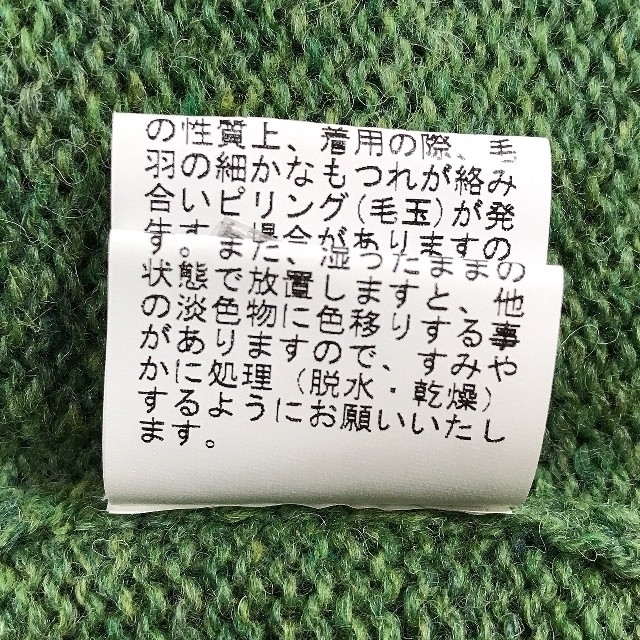 の性質上、着用の際、毛
羽の細かなもつれが絡み
合いピリング(毛玉)が発
す。
状態で放置しますと、他
の淡色物に色移りする事
がありますので、すみや
かに処理（脱水・乾燥）
するようにお願いいたし
ます。